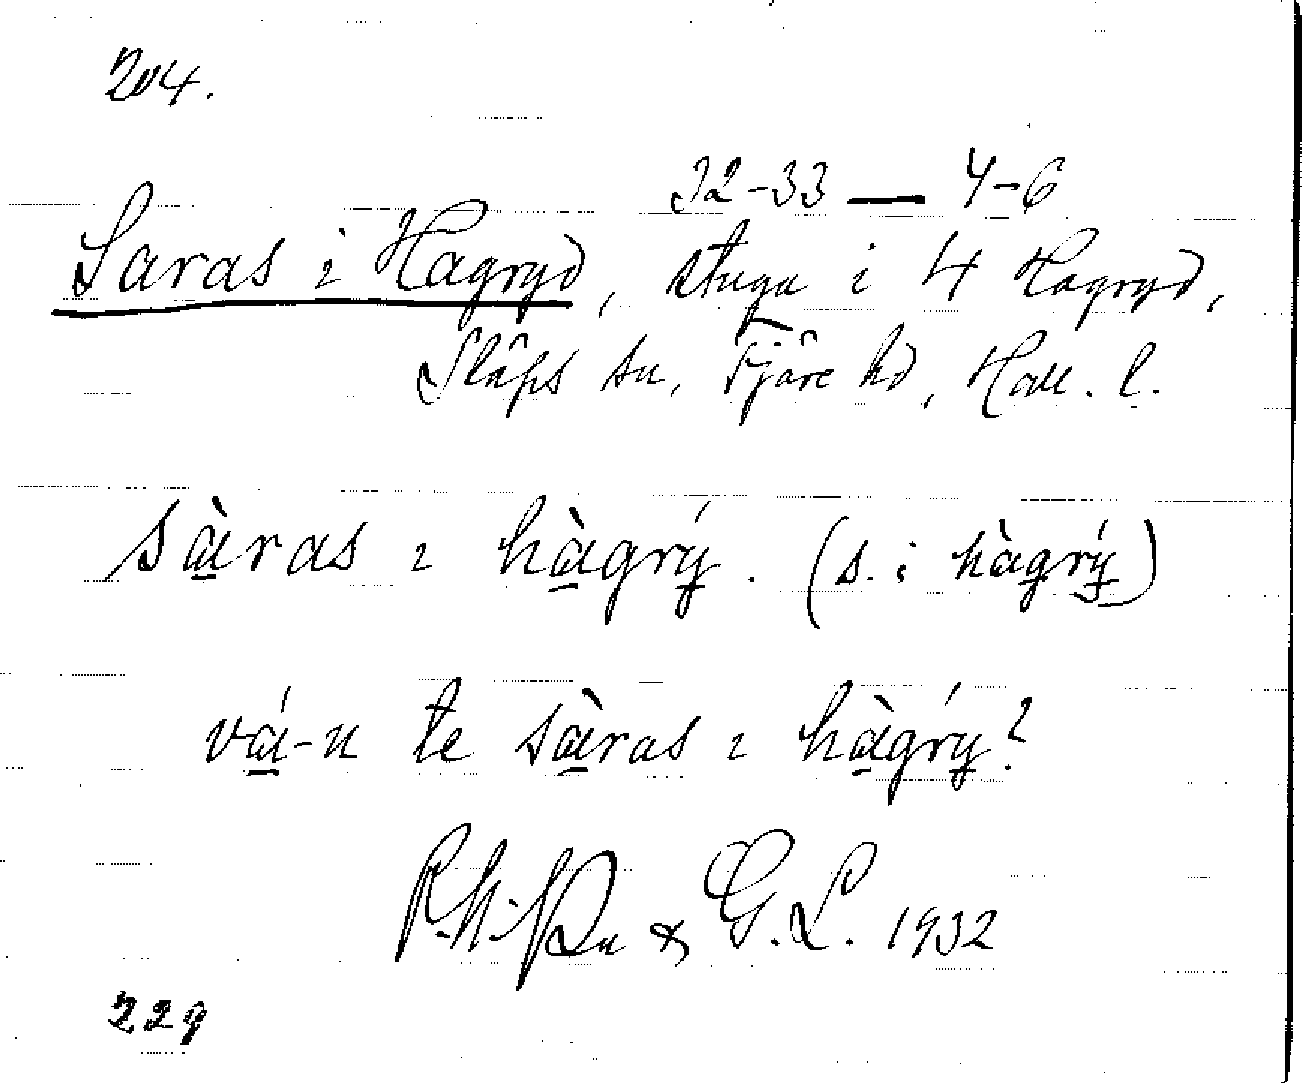 204.
32-33 — 4-6
Saras i Hagryd, stuga i 4 Hagryd,
Släps sn, Fjäre hd, Hall. l.
sàras ı hàgrý. (s. i hàgrý)
vá-n te sàras ı hàgrý?
& G. L. 1932
229